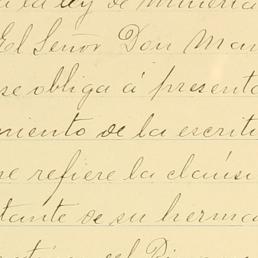 a la ley de minería
El Señor Don Man
se obliga á presenta
miento de la escritu
se refiere la cláusu
tante de su herma